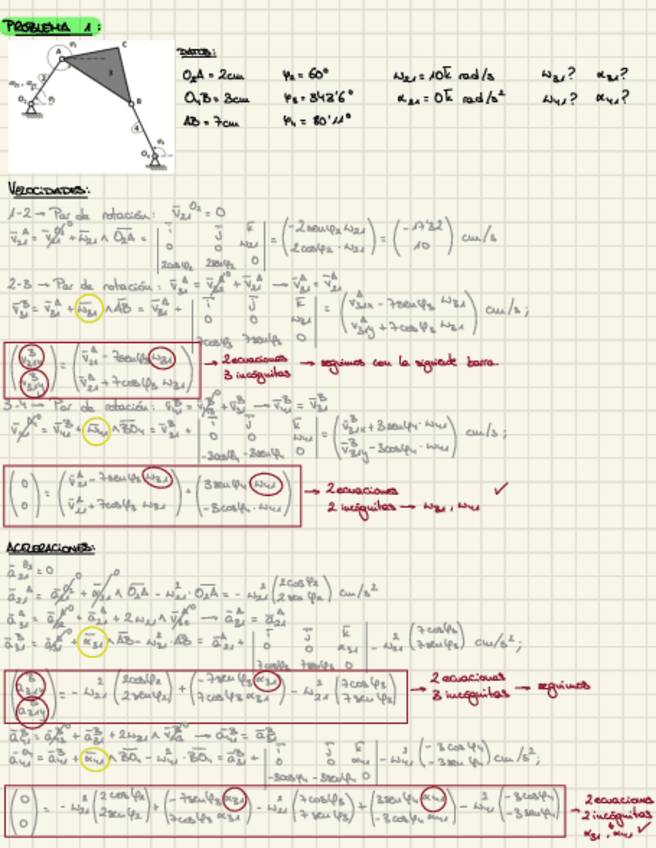 PROBLEMA 1:
DATOS:
O₂A = 2cm φ₂ = 60° ω₂₁ = 10k̄ rad/s ω₃₁? α₃₁?
O₄B = 3cm φ₃ = 343'6° α₂₁ = 0k̄ rad/s² ω₄₁? α₄₁?
AB = 7cm φ₄ = 80'11°
A C 3 B 4 O₂ O₄
VELOCIDADES:
1-2 → Par de rotación: v̄₂₁^O₂ = 0
v̄₂₁^A = v̄₂₁^O₂ + ω̄₂₁ ∧ O₂A = | ī j̄ k̄ ; 0 0 ω₂₁ ; 2cosφ₂ 2senφ₂ 0 | = (-2senφ₂ ω₂₁ ; 2cosφ₂ · ω₂₁) = (-17'32 ; 10) cm/s
2-3 → Par de rotación: v̄₃₁^A = v̄₃₂^A + v̄₂₁^A → v̄₃₁^A = v̄₂₁^A
v̄₃₁^B = v̄₃₁^A + ω̄₃₁ ∧ AB = v̄₃₁^A + | ī j̄ k̄ ; 0 0 ω₃₁ ; 7cosφ₃ 7senφ₃ 0 | = (v₃₁x^A - 7senφ₃ ω₃₁ ; v₃₁y^A + 7cosφ₃ ω₃₁) cm/s;
(v₃₁x^B ; v₃₁y^B) = (v̄₂₁^A - 7senφ₃ ω₃₁ ; v̄₂₁^A + 7cosφ₃ ω₃₁) → 2 ecuaciones 3 incógnitas → seguimos con la siguiente barra
3-4 → Par de rotación: v̄₄₁^B = v̄₄₃^B + v̄₃₁^B → v̄₄₁^B = v̄₃₁^B
v̄₄₁^O₄ = v̄₄₁^B + ω̄₄₁ ∧ BO₄ = v̄₃₁^B + | ī j̄ k̄ ; 0 0 ω₄₁ ; -3cosφ₄ -3senφ₄ 0 | = (v̄₃₁x^B + 3senφ₄ · ω₄₁ ; v̄₃₁y^B - 3cosφ₄ · ω₄₁) cm/s;
(0 ; 0) = (v̄₂₁^A - 7senφ₃ ω₃₁ ; v̄₂₁^A + 7cosφ₃ ω₃₁) + (3senφ₄ ω₄₁ ; -3cosφ₄ · ω₄₁) → 2 ecuaciones 2 incógnitas → ω₃₁, ω₄₁ ✓
ACELERACIONES:
ā₂₁^O₂ = 0
ā₂₁^A = ā₂₁^O₂ + ᾱ₂₁ ∧ O₂A - ω₂₁² · O₂A = -ω₂₁² (2cosφ₂ ; 2senφ₂) cm/s²
ā₃₁^A = ā₃₂^A + ā₂₁^A + 2ω₂₁ ∧ v̄₃₂^A → ā₃₁^A = ā₂₁^A
ā₃₁^B = ā₃₁^A + ᾱ₃₁ ∧ AB - ω₃₁² · AB = ā₂₁^A + | ī j̄ k̄ ; 0 0 α₃₁ ; 7cosφ₃ 7senφ₃ 0 | - ω₃₁² (7cosφ₃ ; 7senφ₃) cm/s²;
(a₃₁x^B ; a₃₁y^B) = -ω₂₁² (2cosφ₂ ; 2senφ₂) + (-7senφ₃ α₃₁ ; 7cosφ₃ α₃₁) - ω₂₁² (7cosφ₃ ; 7senφ₃) → 2 ecuaciones 3 incógnitas → seguimos
ā₄₁^B = ā₄₃^B + ā₃₁^B + 2ω₃₁ ∧ v̄₄₃^B → ā₄₁^B = ā₃₁^B
ā₄₁^O₄ = ā₄₁^B + ᾱ₄₁ ∧ BO₄ - ω₄₁² · BO₄ = ā₃₁^B + | ī j̄ k̄ ; 0 0 α₄₁ ; -3cosφ₄ -3senφ₄ 0 | - ω₄₁² (-3cosφ₄ ; -3senφ₄) cm/s²;
(0 ; 0) = -ω₂₁² (2cosφ₂ ; 2senφ₂) + (-7senφ₃ α₃₁ ; 7cosφ₃ α₃₁) - ω₂₁² (7cosφ₃ ; 7senφ₃) + (3senφ₄ α₄₁ ; -3cosφ₄ α₄₁) - ω₄₁² (-3cosφ₄ ; -3senφ₄) → 2 ecuaciones 2 incógnitas α₃₁, α₄₁ ✓